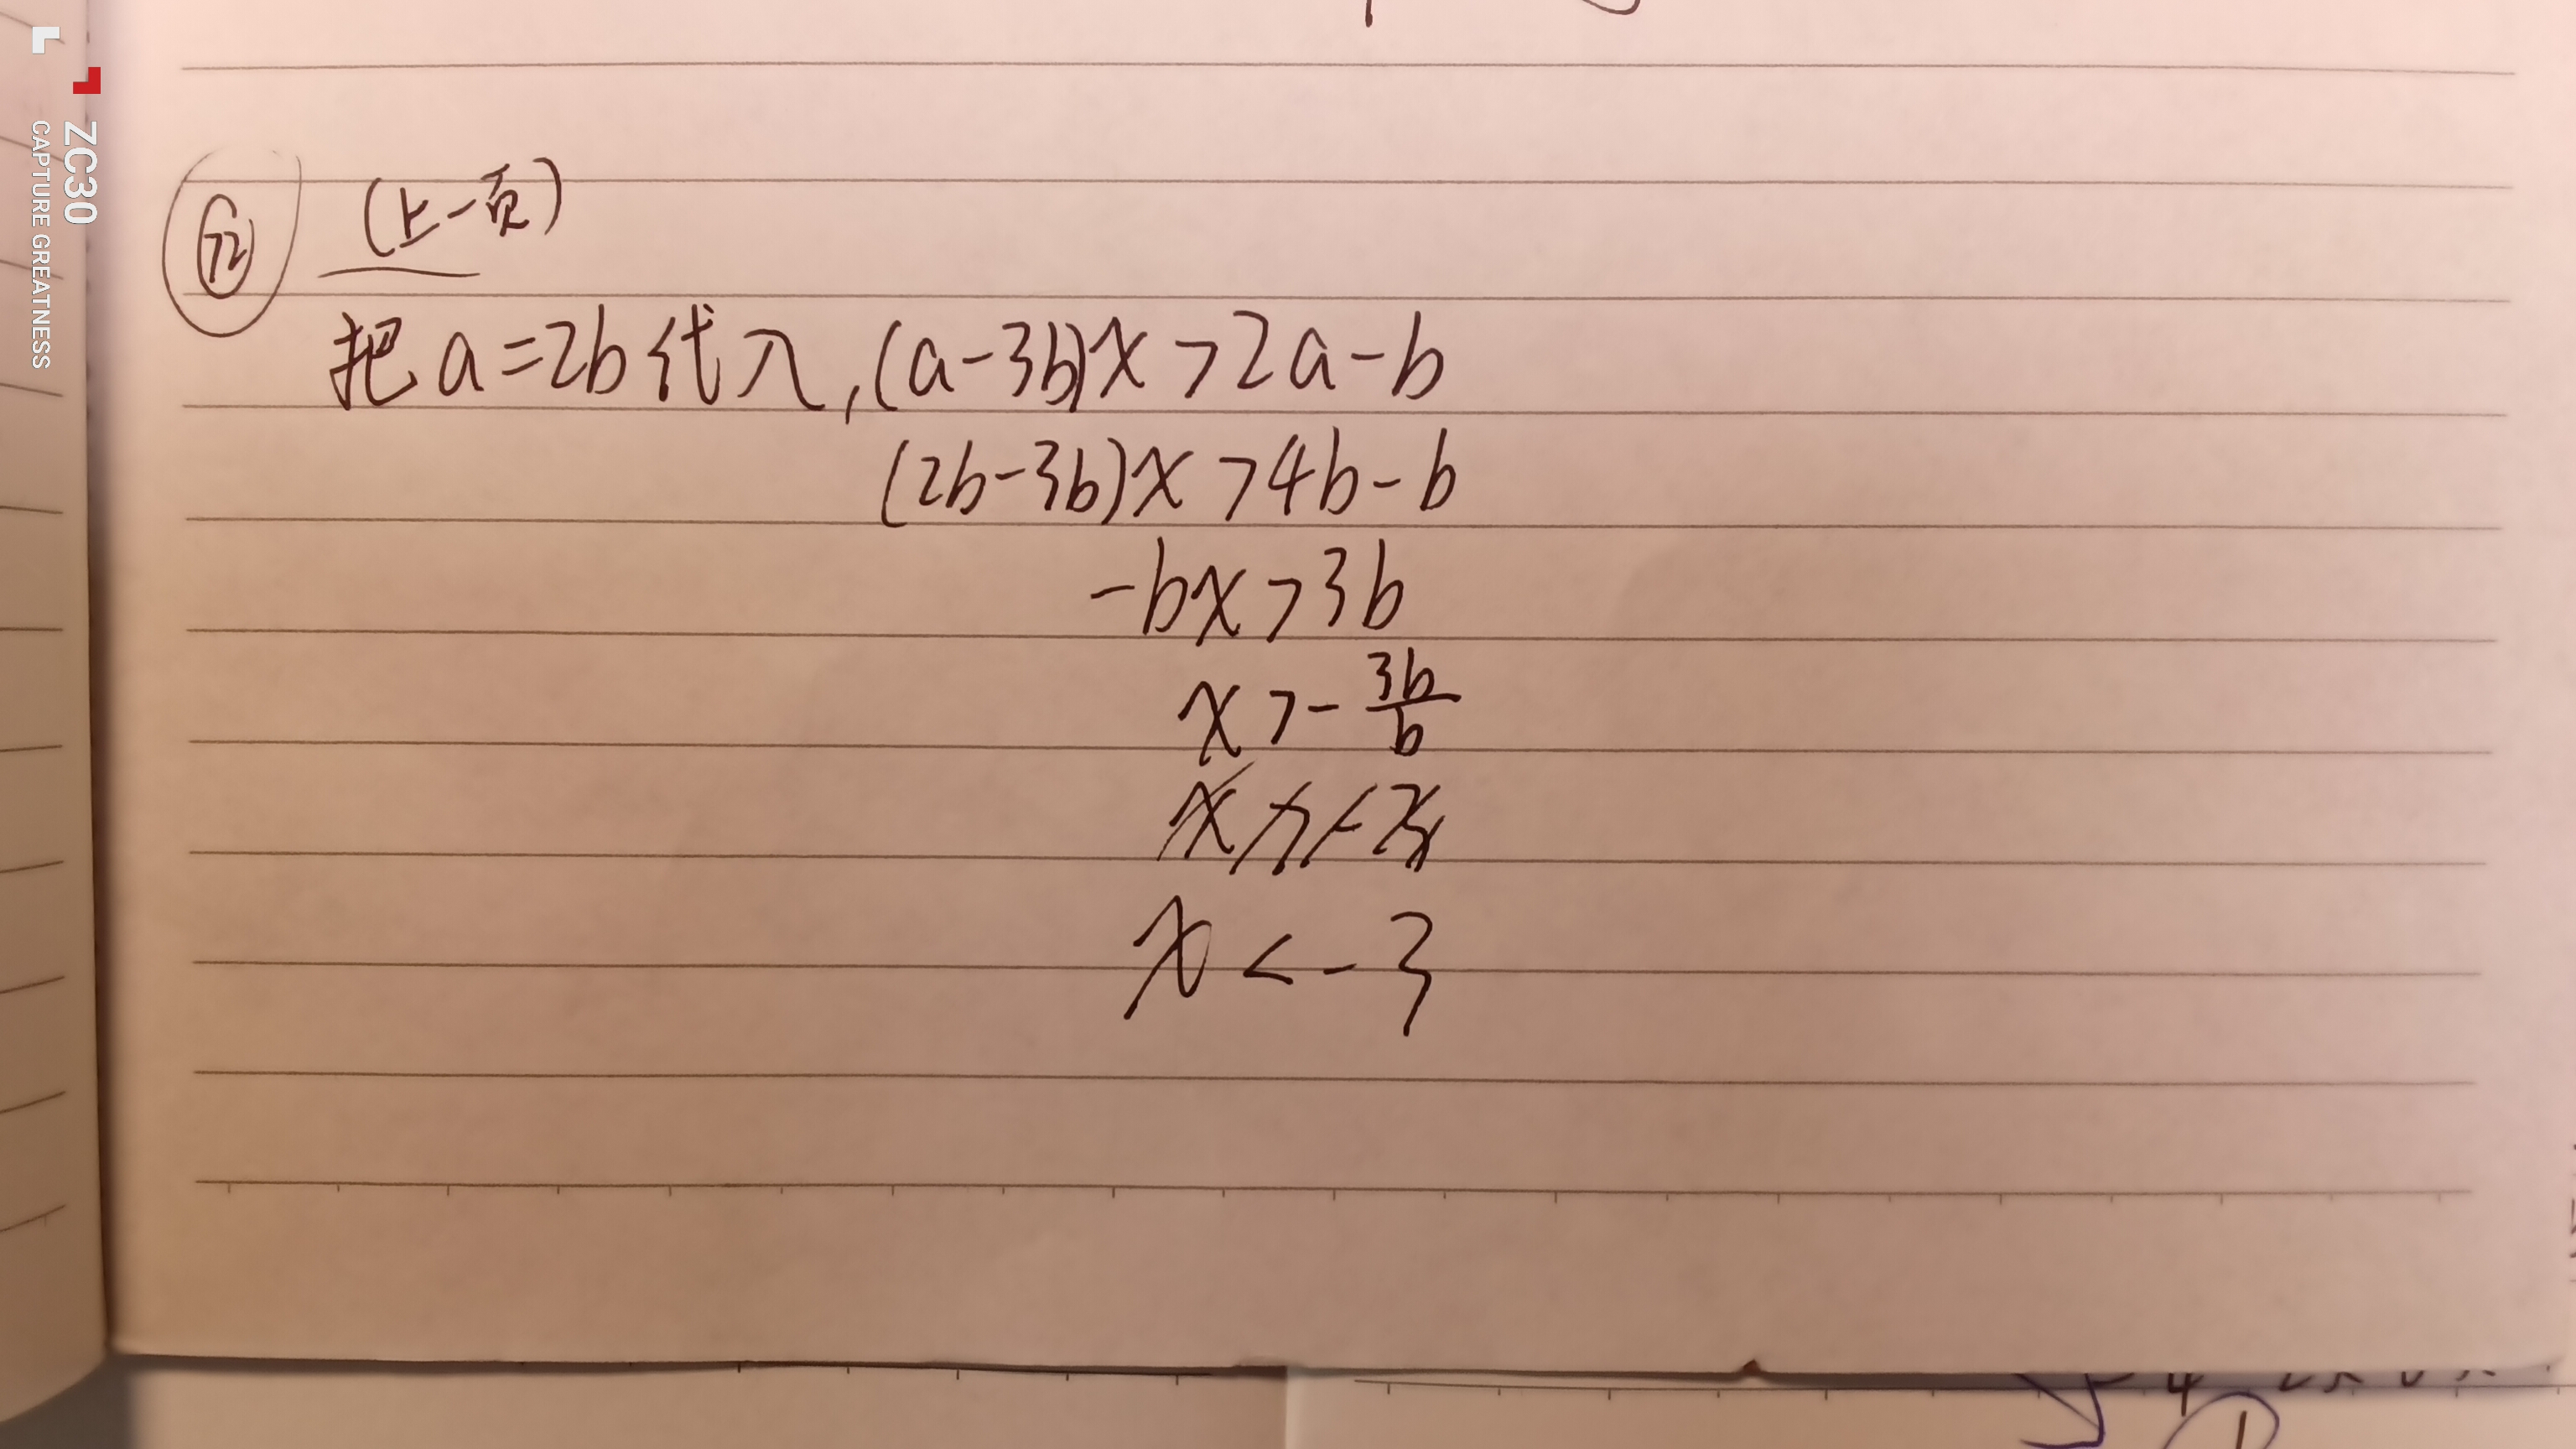 ZC30
CAPTURE GREATNESS
72 (上一页)
把a=2b代入,(a-3b)x>2a-b
(2b-3b)x>4b-b
-bx>3b
x>-3b/b
x>-3
x<-3